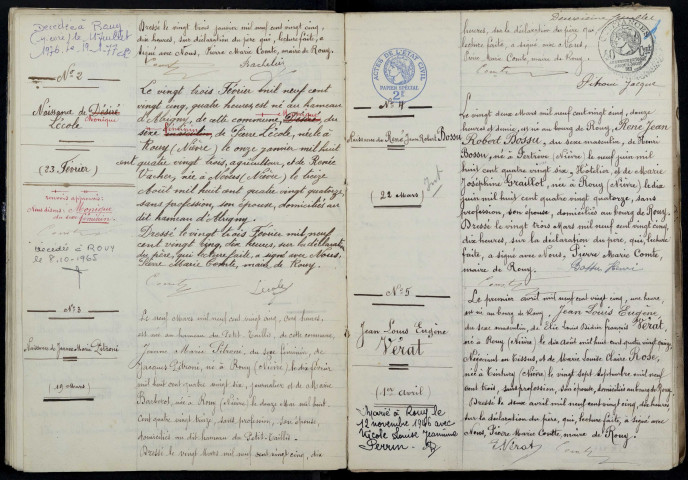 Décédée à Rouy
(Nièvre) le 11 juillet
1976
Dressé le vingt trois janvier mil neuf cent vingt cinq,
dix heures, sur déclaration du père qui, lecture faite, a
signé avec Nous, Pierre Marie Comte, maire de Rouy.
Comte
Nº 2
Naissance de Désiré
Monique
Lécole
(23 Février)
renvois approuvés
Nous disons: Monique
du sexe féminin
Comte
Décédée à ROUY
le 8.10.1965
Le vingt trois Février mil neuf cent
vingt cinq, quatre heures est né au hameau
d'Aligny, de cette commune, Désiré Monique
du sexe féminin
de Jean Lécole, né le à
Rouy (Nièvre) le onze janvier mil huit
cent quatre vingt douze, agriculteur, et de Renée
Vacher, née à Nevers (Nièvre) le treize
Août mil huit cent quatre vingt quatorze,
sans profession, son épouse, domiciliés au
dit hameau d'Aligny.
Dressé le vingt trois Février mil neuf
cent vingt cinq, dix heures, sur la déclaration
du père, qui, lecture faite, a signé avec Nous,
Pierre Marie Comte, maire de Rouy.
Comte
Lécole
Nº 3
Naissance de Jeanne Marie Pétroni
(19 Mars)
Le neuf Mars mil neuf cent vingt cinq, onze heures,
est née au hameau du Petit-Taillis, de cette commune,
Jeanne Marie Pétroni, du sexe féminin, de
Jacques Pétroni, né à Rouy (Nièvre) le dix février
mil huit cent quatre vingt six, journalier et de Marie
née à Rouy (Nièvre) le douze Mars mil huit
cent quatre vingt treize, sans profession, son épouse,
domiciliés au dit hameau du Petit-Taillis.
Dressé le vingt Mars mil neuf cent vingt cinq, dix
Deuxième feuillet
heures, sur la déclaration du père, qui
lecture faite, a signé avec Nous,
Pierre Marie Comte, maire de Rouy.
Comte
ACTES DE L'ÉTAT CIVIL
PAPIER SPÉCIAL
2F
Nº 4
Naissance de René Jean Robert Bossu
(22 Mars)
Le vingt deux Mars mil neuf cent vingt cinq, douze
heures et demie, est né au bourg de Rouy, René Jean
Robert Bossu, du sexe masculin, de Henri
Bossu, né à Fertrève (Nièvre) le neuf juin mil
huit cent quatre vingt six, Hôtelier, et de Marie
Joséphine Graillot, née à Rouy (Nièvre) le dix
juin mil huit cent quatre vingt quatorze, sans
profession, son épouse, domiciliés au bourg de Rouy.
Dressé le vingt trois Mars mil neuf cent vingt cinq,
dix heures, sur la déclaration du père, qui, lecture
faite, a signé avec Nous, Pierre Marie Comte,
maire de Rouy.
Bossu Henri
Comte
Nº 5
Jean Louis Eugène
Vérat
(1er Avril)
Marié à Rouy le
12 novembre 1946 avec
Nicole Louise Jeannine
Perrin
Le premier avril mil neuf cent vingt cinq, une heure,
est né au bourg de Rouy, Jean Louis Eugène,
du sexe masculin, de Elie Louis François Vérat,
né à Rouy (Nièvre) le dix Août mil huit cent quatre vingt cinq,
Négociant en tissus, et de Marie Louise Claire Rose,
née à Tintury (Nièvre) le vingt Septembre mil neuf
cent trois, sans profession, son épouse, domiciliés au bourg de Rouy.
Dressé le deux avril mil neuf cent vingt cinq, dix heures
sur la déclaration du père, qui, lecture faite, a signé avec
Nous, Pierre Marie Comte, maire de Rouy.
E. Vérat
Comte